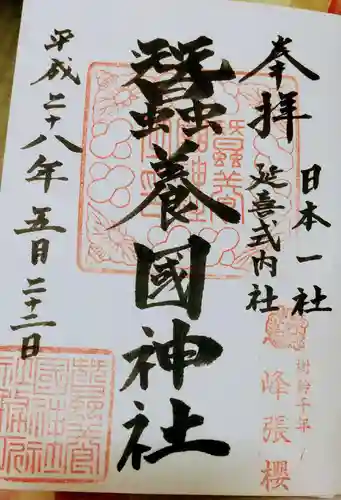 奉拝
日本一社
延喜式内社
蠶養國神社
平成二十八年五月二十二日
樹齢千年
峰張櫻